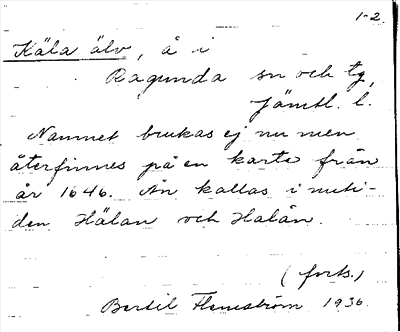 1-2.
Käla älv, å i
Ragunda sn och tg,
Jämtl. l.
Namnet brukas ej nu men
återfinnes på en karta från
år 1646. Ån kallas i nuti-
den Hälan och Halån.
(forts.)
Bertil Flemström 1936